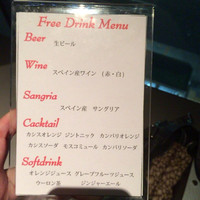 Free Drink Menu
Beer
生ビール
Wine
スペイン産ワイン (赤・白)
Sangria
スペイン産 サングリア
Cacktail
カシスオレンジ ジントニック カンパリオレンジ
カシスソーダ モスコミュール カンパリソーダ
Softdrink
オレンジジュース グレープフルーツジュース
ウーロン茶 ジンジャーエール